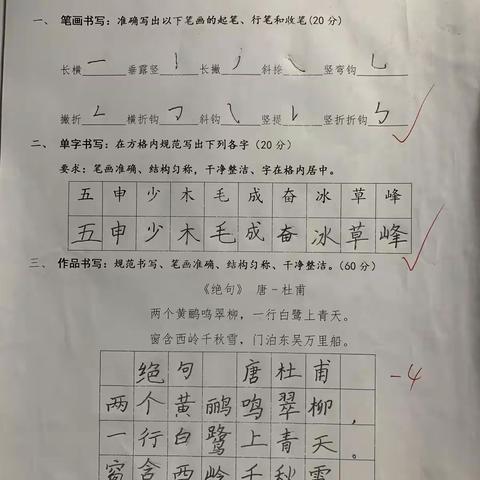 一、 笔画书写：准确写出以下笔画的起笔、行笔和收笔(20分)
长横 一 垂露竖 丨 长撇 丿 斜捺 ㇏ 竖弯钩 乚
撇折 ㇜ 横折钩 ㇆ 斜钩 ㇂ 竖提 ㇙ 竖折折钩 ㇉
二、 单字书写：在方格内规范写出下列各字（20分）
要求：笔画准确、结构匀称，干净整洁、字在格内居中。
五 申 少 木 毛 成 奋 冰 草 峰
五 申 少 木 毛 成 奋 冰 草 峰
三、 作品书写：规范书写、笔画准确、结构匀称、干净整洁。（60分）
《绝句》 唐-杜甫
两个黄鹂鸣翠柳，一行白鹭上青天。
窗含西岭千秋雪，门泊东吴万里船。
绝 句 唐 杜 甫
-4
两 个 黄 鹂 鸣 翠 柳 ，
一 行 白 鹭 上 青 天 。
窗 含 西 岭 千 秋 雪